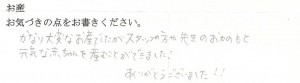 お産
お気づきの点をお書きください。
かなり大変なお産でしたがスタッフの方や先生のおかげもと
元気な赤ちゃんを産むことができました!
ありがとうございました!!